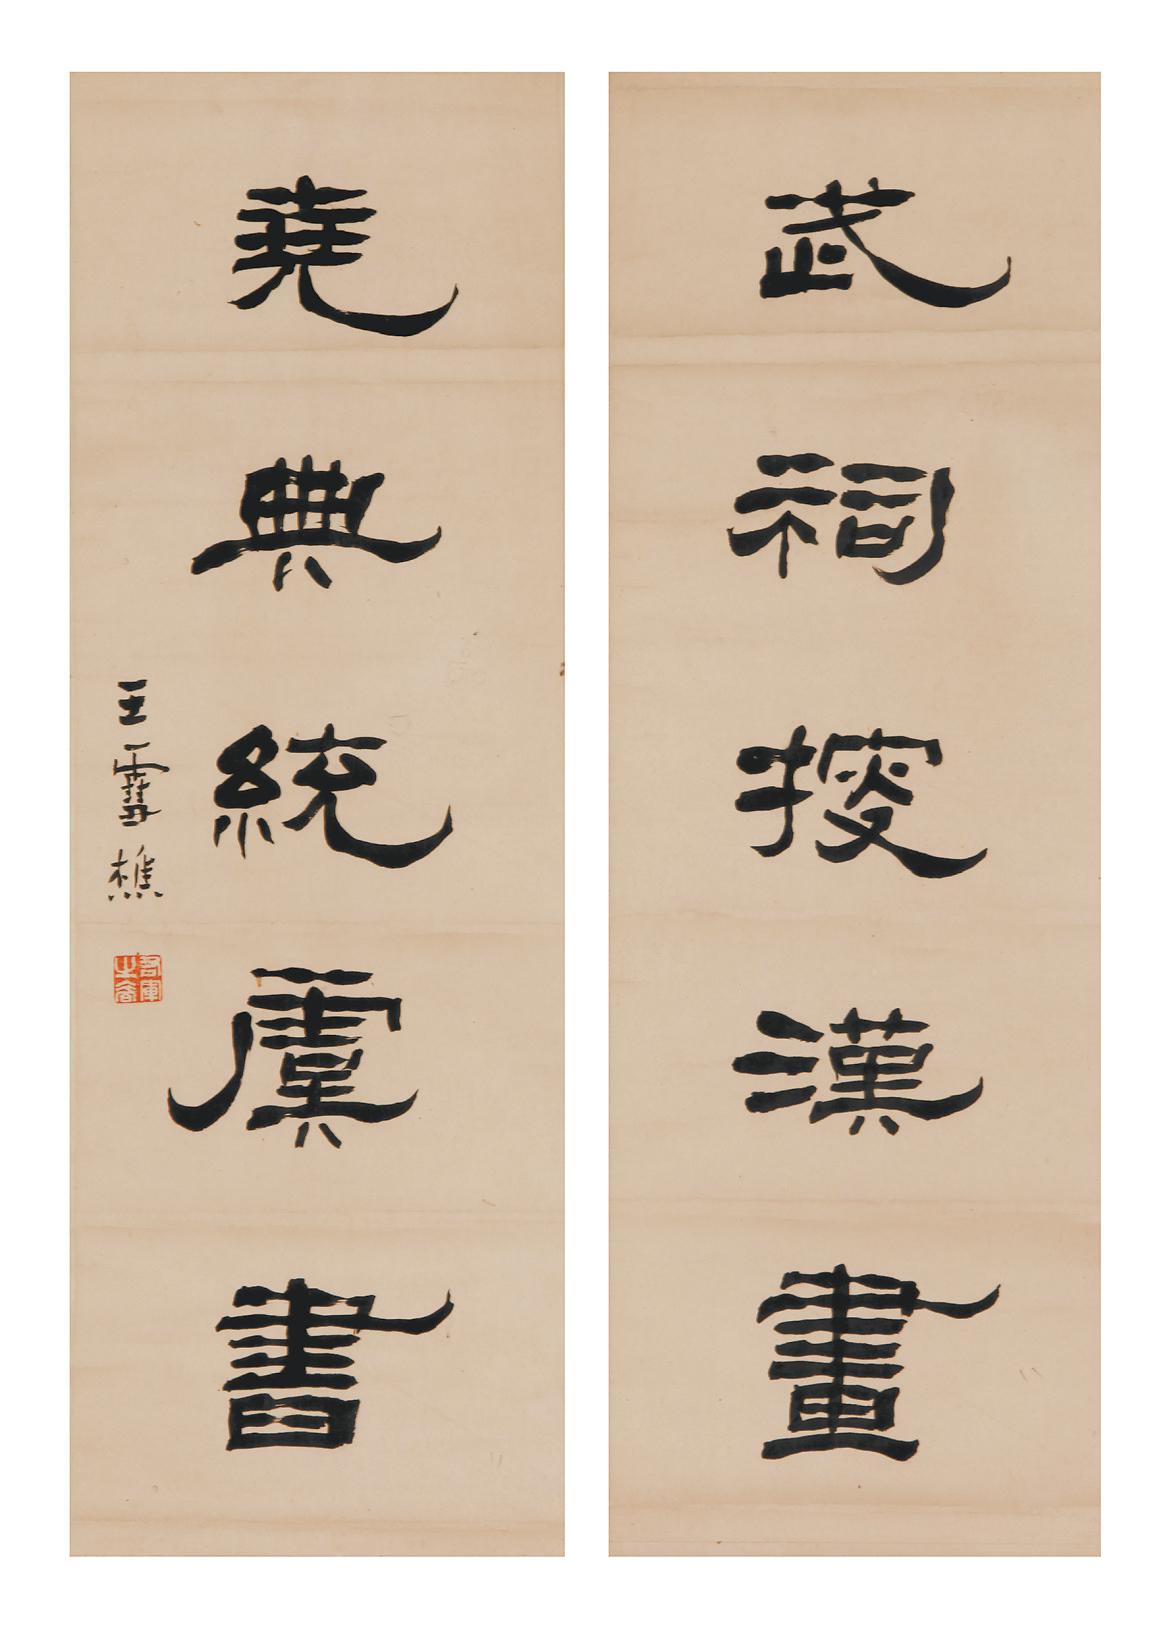 武祠搜漢畫
堯典統虞書
王雪樵